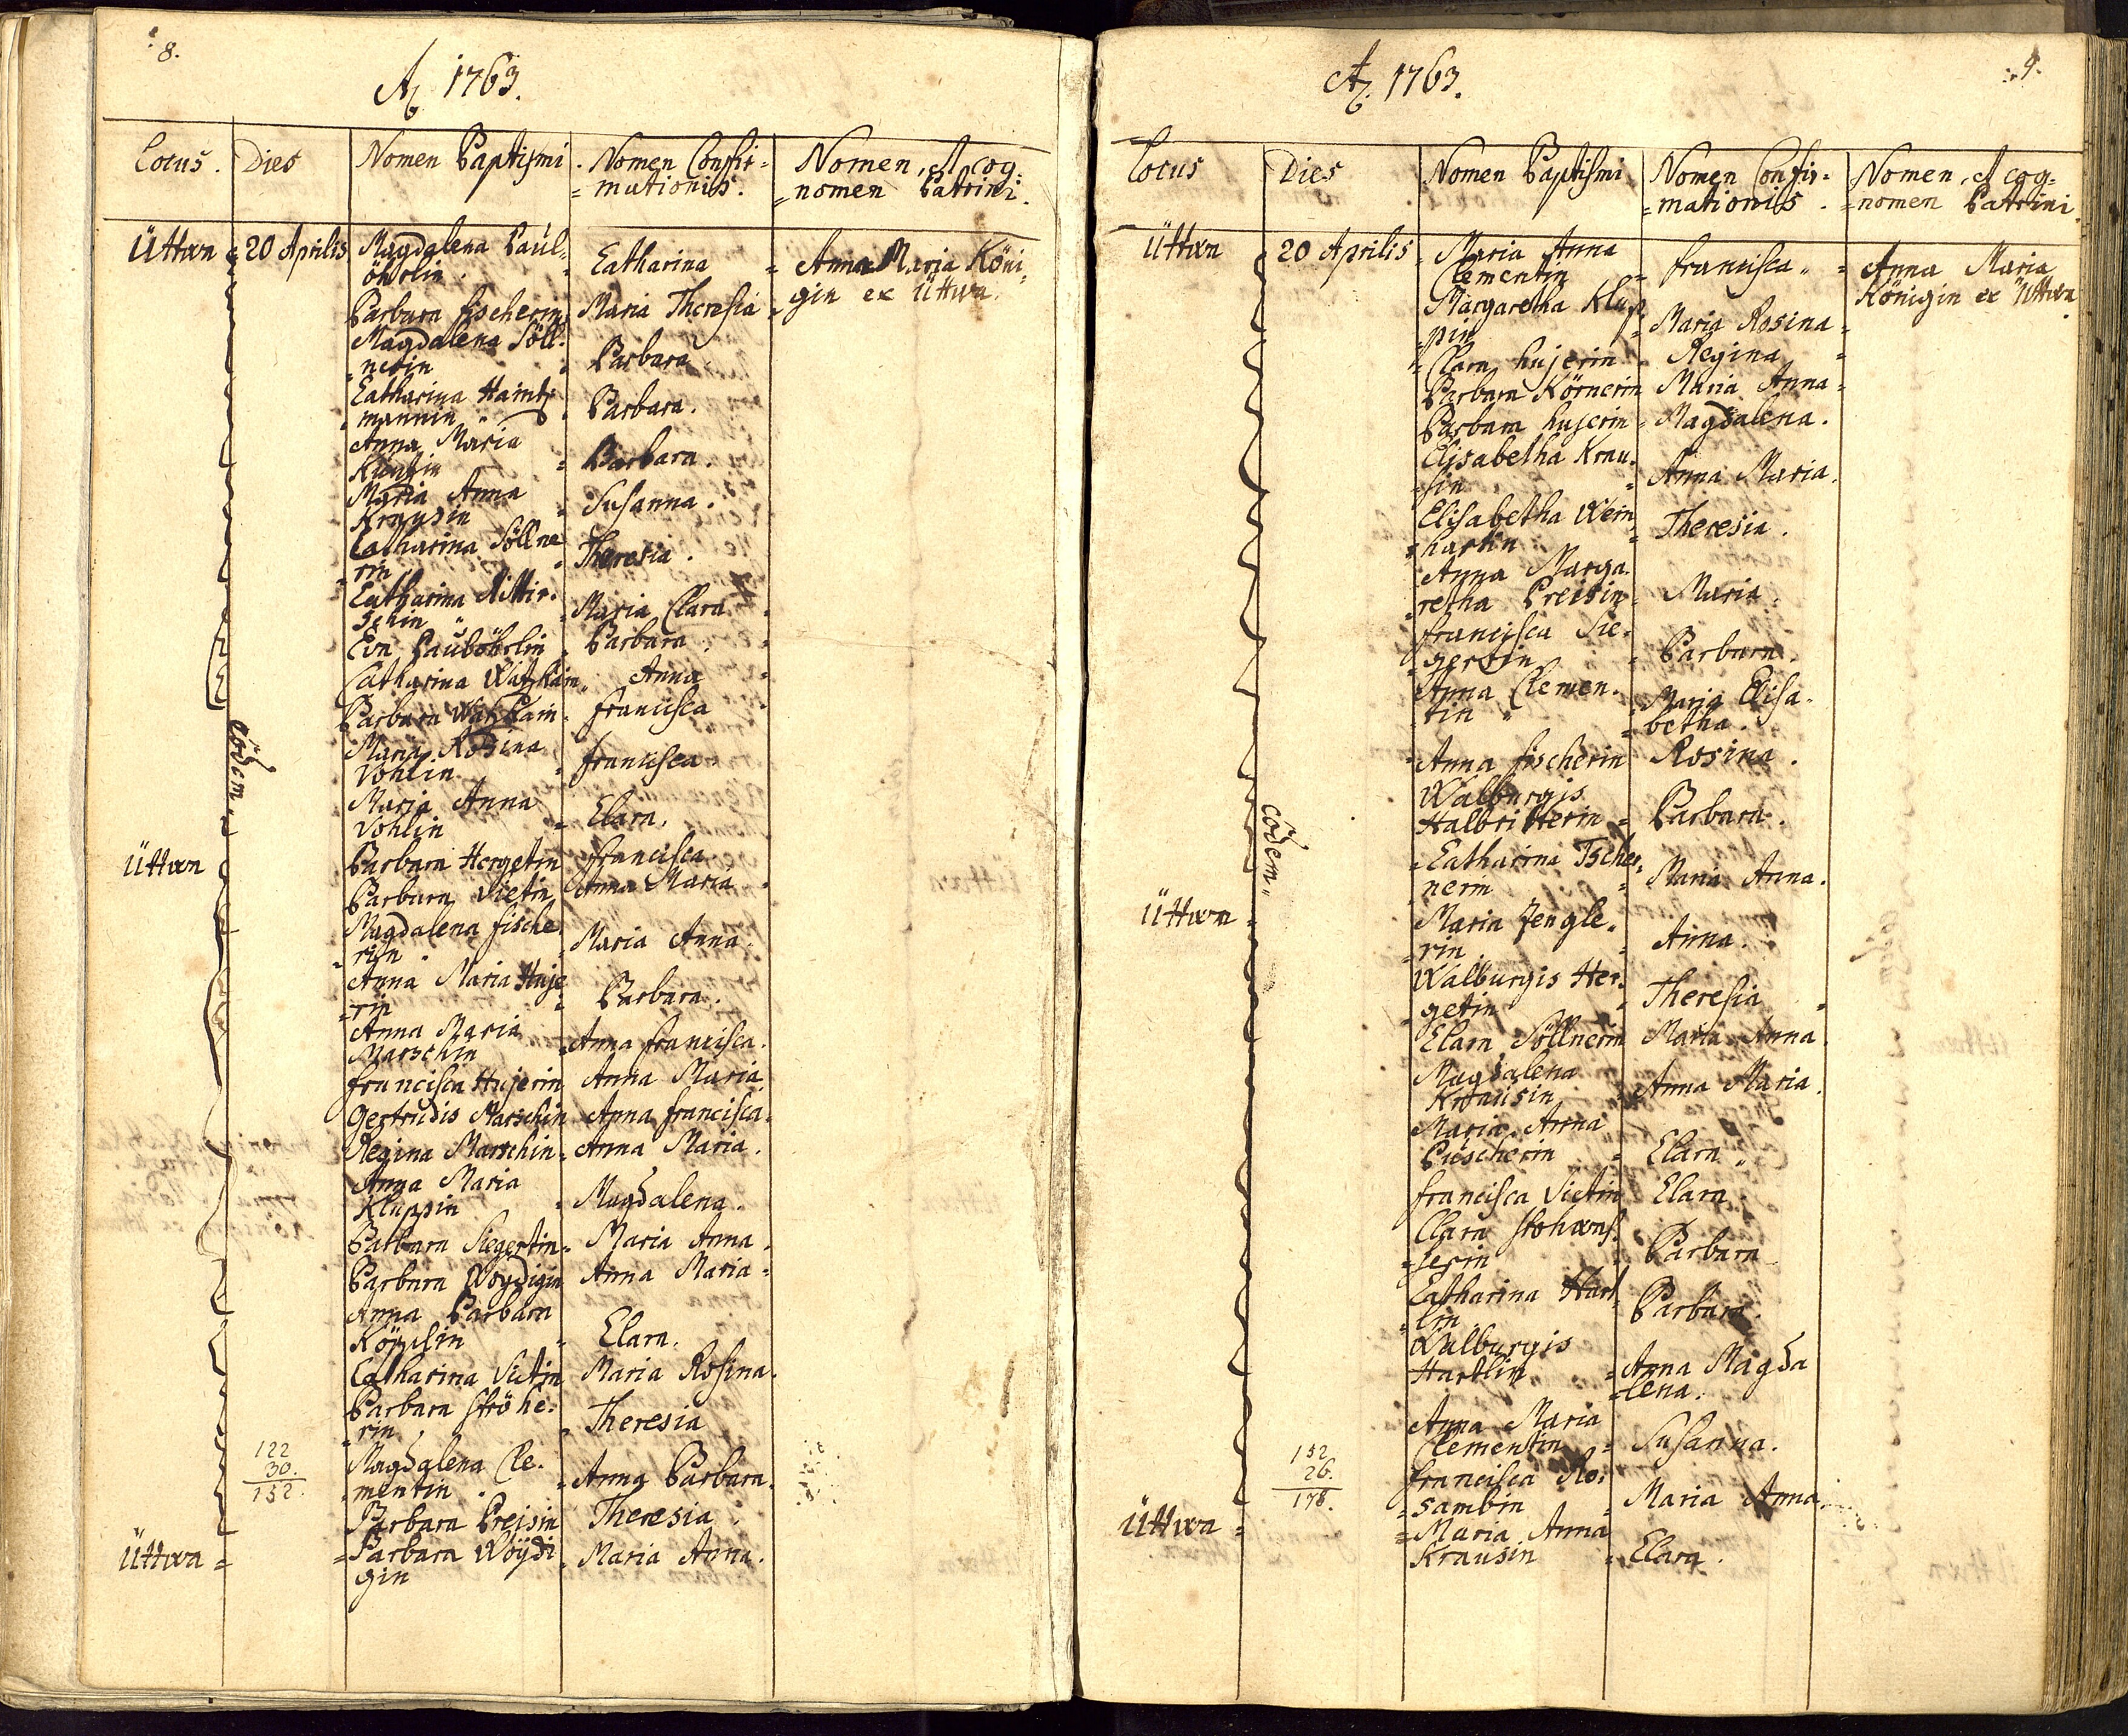 8.
Aō 1763.
Locus. Dies Nomen Baptismi. Nomen Confir=
=mationis. Nomen, et cog=
=nomen Patrini.
Üttwa = 20 Aprilis Magdalena Paül=
öhrlin. = Catharina = Anna Maria Köni=
Barbara fischerin Maria Theresia = gin ex Üttwa.
Magdalena Söll=
=nerin = Barbara
Catharina Haintz
=mannin Barbara.
Anna Maria
= Barbara.
Maria Anna
Krausin = Susanna.
Catharina Söllne
=rin Theresia.
Catharina
Maria Clara
Eva Pauböhrlin Barbara.
Catharina Anna
Barbara francisca
Maria Rosina
Vohlin francisca
eodem
Maria Anna
Vohlin = Clara.
Üttwa Barbara Hergetin francisca
Barbara Sietin Anna Maria
Magdalena fische
=rin Maria Anna.
Anna Maria Huje
=rin = Barbara.
Anna Maria
Marschin = Anna francisca.
francisca Hujerin Anna Maria
Gertrudis Marschin Anna francisca.
Regina Marschin = Anna Maria.
Anna Maria
Kluppin Magdalena.
Barbara Siegertin = Maria Anna.
Barbara Woydigin Anna Maria =
Anna Barbara
Köpplin = Clara.
Catharina Sietin Maria Rosina.
Barbara ströhe=
=rin = Theresia
122
30.
152.
Magdalena Cle=
=mentin = Anna Barbara.
Barbara Preisin Theresia.
Üttwa = = Barbara Wöÿdi = Maria Anna.
gin
9.
Aō 1763.
Locus Dies Nomen Baptismi Nomen Confir=
=mationis. Nomen, et cog=
=nomen Patrini.
Üttwa 20 Aprilis = Maria Anna
Clementin = francisca = Anna Maria
Königin ex Üttwa.
Margaretha Klup=
=pin = Maria Rosina =
= Clara hujerin Regina =
Barbara Körnerin Maria Anna =
Barbara hujerin = Magdalena.
Elisabetha Krau=
=sin = Anna Maria.
Elisabetha Wein
=hartin = Theresia.
Anna Marga
=retha Preisin = Maria.
francisca Sie=
=gertin = Barbara.
Anna Clemen=
=tin = Maria Elisa=
=betha.
Anna fischerin Rosina.
Walburgis
Halbritterin = Barbara.
eodem
= Catharina Tscher=
nerin = Maria Anna.
Üttwa =
Maria Zengle=
=rin = Anna.
Walburgis Her=
=getin = Theresia =
Clara Söllnerin Maria Anna.
Magdalena
Krausin = Anna Maria.
Maria Anna
Püscherin = Clara
francisca Sietin Clara
Clara
=serin = Barbara
Catharina Hart
=lin Barbara.
Walburgis
Hartlin = Anna Magda
=lena.
Anna Maria
Clementin = Susanna.
152.
26.
178.
francisca Ro=
=sambin = Maria Anna.
Üttwa =
= Maria Anna
Krausin = Clara.